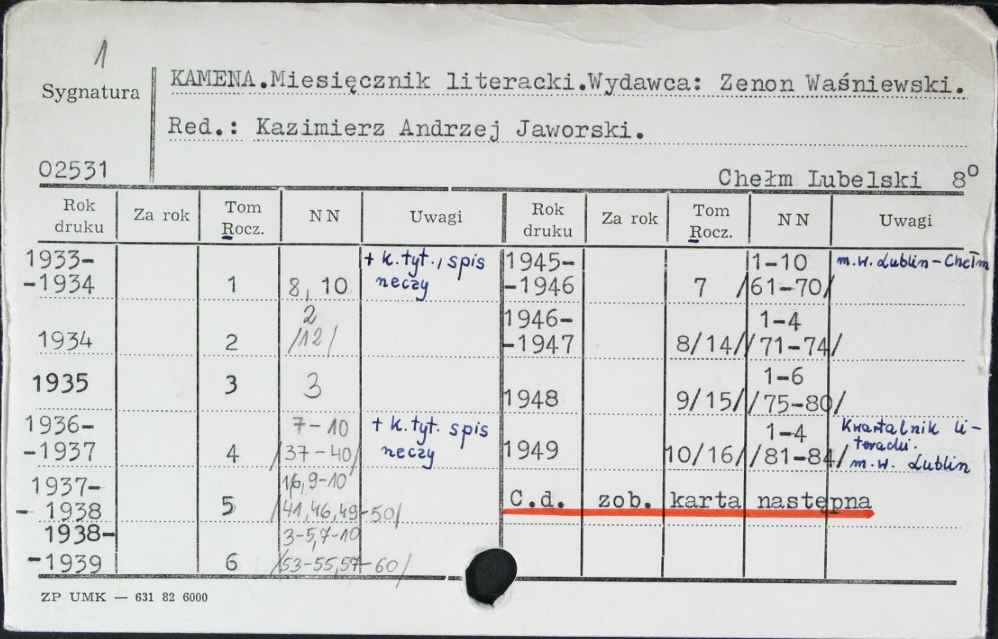 1
Sygnatura
KAMENA.Miesięcznik literacki.Wydawca: Zenon Waśniewski.
Red.: Kazimierz Andrzej Jaworski.
02531
Chełm Lubelski 8°
Rok druku Za rok Tom Rocz. NN Uwagi Rok druku Za rok Tom Rocz. NN Uwagi
1933-
-1934 1 8, 10 + k. tyt., spis
rzeczy
1934 2 2
/12/
1935 3 3
1936-
-1937 4 7-10
/37-40/ + k. tyt. spis
rzeczy
1937-
- 1938 5 1,6,9-10
/41,46,49-50/
1938-
-1939 6 3-5,7-10
/53-55,57-60/
1945-
-1946 7 1-10
/61-70/ m.w. Lublin-Chełm
1946-
-1947 8/14/ 1-4
/71-74/
1948 9/15/ 1-6
/75-80/
1949 10/16/ 1-4
/81-84/ Kwartalnik li-
teracki.
m.w. Lublin
C.d. zob. karta następna
ZP UMK — 631 82 6000